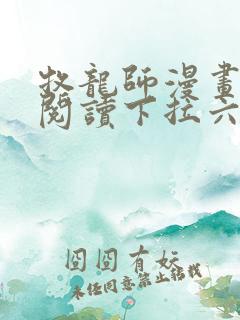 牧龍師漫畫
閱讀下拉六
囧囧有妖
未经同意禁止转载